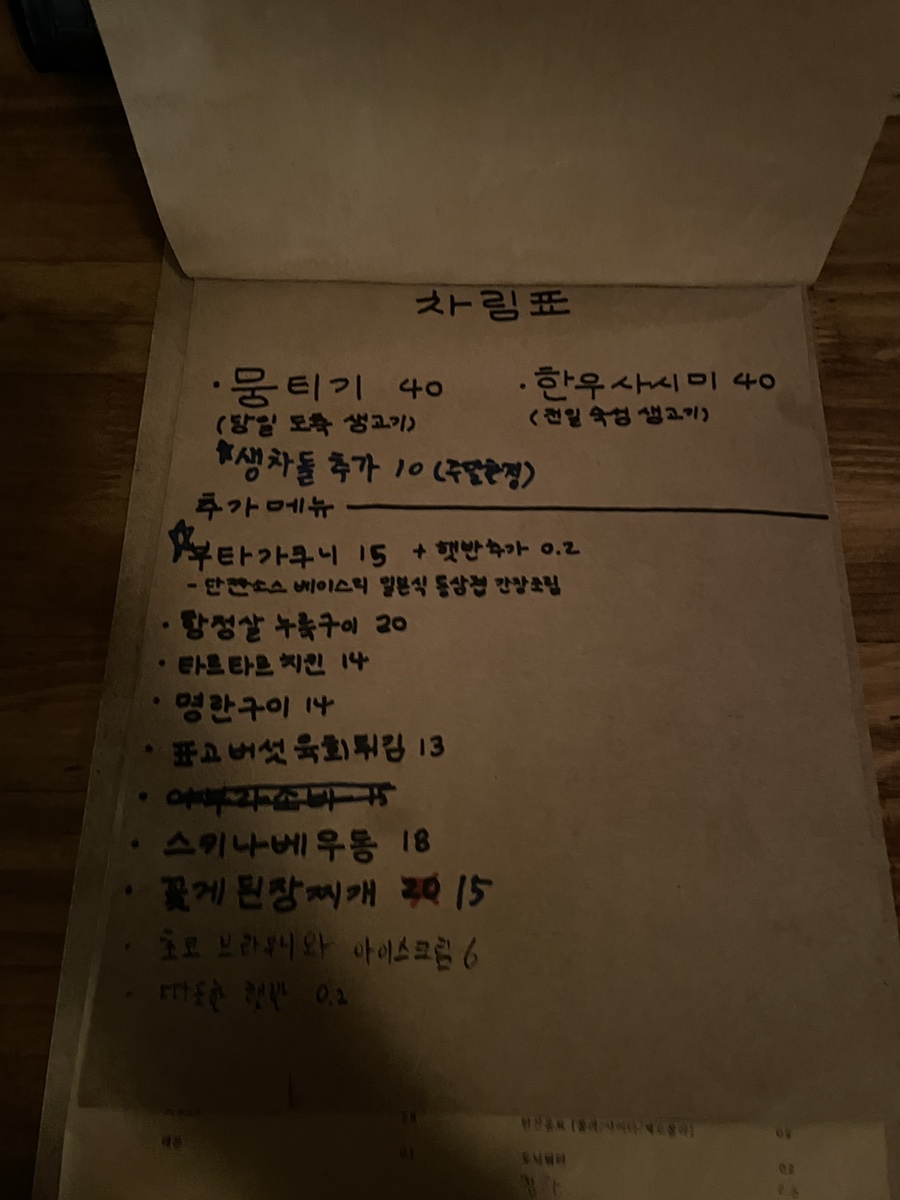 차림표
· 뭉티기 40 · 한우사시미 40
(당일 도축 생고기) (전일 숙성 생고기)
★생차돌 추가 10 (주말한정)
추가메뉴
☆부타가쿠니 15 + 햇반추가 0.2
- 단짠소스 베이스의 일본식 통삼겹 간장조림
· 항정살 누룩구이 20
· 타르타르 치킨 14
· 명란구이 14
· 표고버섯육회튀김 13
· 아부라소바 15
· 스키나베우동 18
· 꽃게된장찌개 20 15
· 초코 브라우니와 아이스크림 6
· 따뜻한 햇반 0.2
탄산음료 [콜라/사이다/제로콜라]
토닉워터